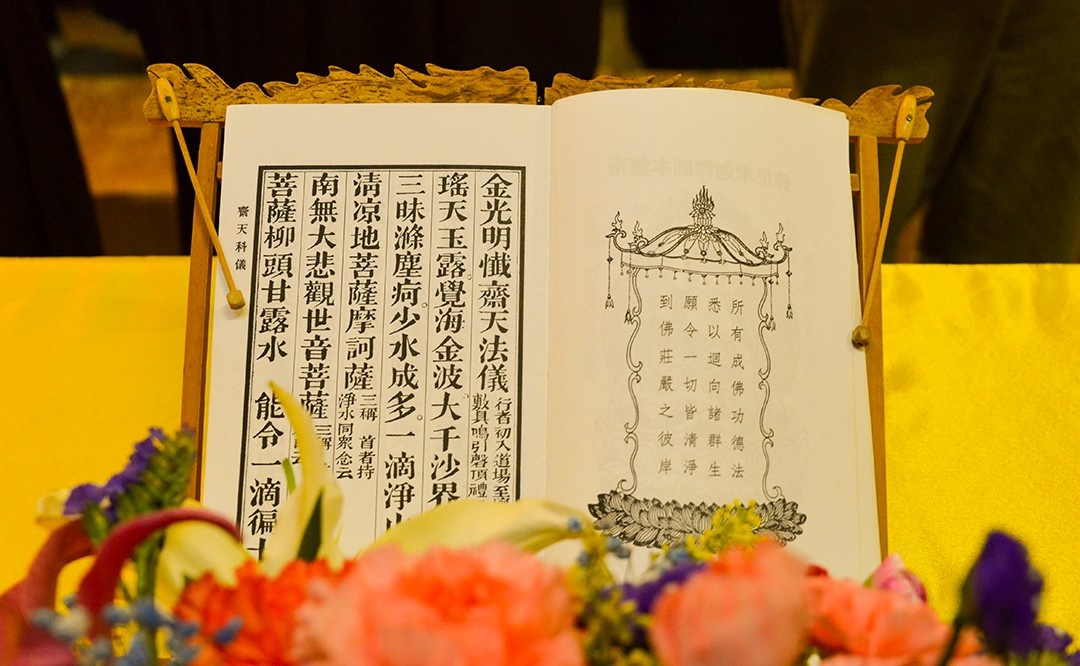 所有成佛功德法
悉以迴向諸群生
願令一切皆清淨
到佛莊嚴之彼岸
金光明懺齋天法儀 行者初入道場至
敷具鳴引磬頂禮
瑤天玉露。覺海金波。大千沙界
三昧滌塵疴。少水成多。一滴淨
清凉地菩薩摩訶薩 三稱 首者持
淨水同眾念云
南無大悲觀世音菩薩 三稱
菩薩柳頭甘露水 能令一滴徧
齋天科儀